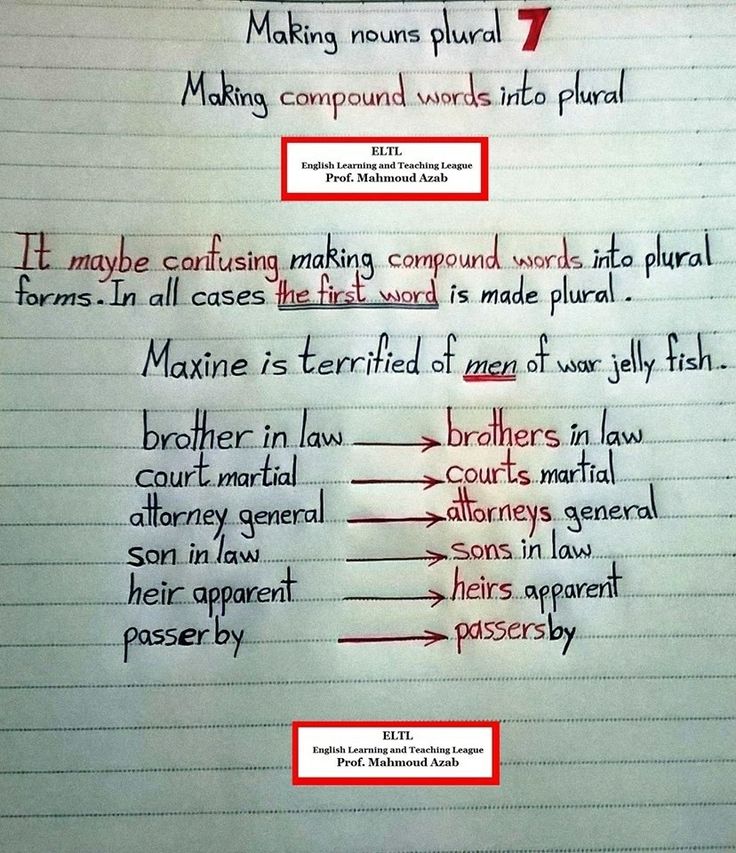 Making nouns plural 7
Making compound words into plural
ELTL
English Learning and Teaching League
Prof. Mahmoud Azab
It maybe confusing making compound words into plural
forms. In all cases the first word is made plural.
Maxine is terrified of men of war jelly fish.
brother in law → brothers in law
court martial → courts martial
attorney general → attorneys general
son in law → sons in law
heir apparent → heirs apparent
passerby → passersby
ELTL
English Learning and Teaching League
Prof. Mahmoud Azab